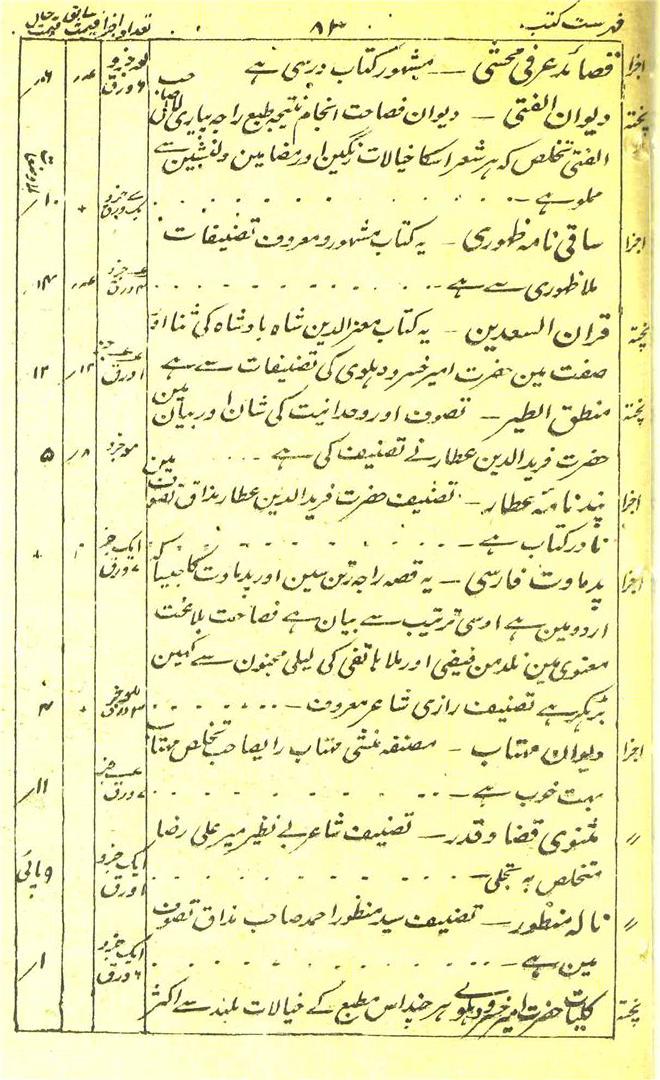 فہرست کتب ۸۳ تعداد اجزا سابق قیمت حال قیمت
اجزا قصائد عرفی محشی — مشہور کتاب درسی ہے
پختہ دیوان الفتی — دیوان فصاحت انجام نتیجہ طبع راجہ پیاری لال صاحب
الفتی تخلص کہ ہر شعر اسکا خیالات رنگین اور مضامین دلنشین سے
مملو ہے
اجزا ساقی نامہ ظہوری — یہ کتاب مشہور و معروف تصنیفات
ملا ظہوری سے ہے ۱۴؍
پختہ قران السعدین — یہ کتاب معز الدین شاہ بادشاہ کی ثنا اور
صفت مین حضرت امیر خسرو دہلوی کی تصنیفات سے ہے ۱۲؍ ۱۲
پختہ منطق الطیر — تصوف اور وحدانیت کی شان اور بیان مین
حضرت فرید الدین عطار نے تصنیف کی ہے ۸؍ ۵
اجزا پند نامہ عطار — تصنیف حضرت فرید الدین عطار مذاق تصوف مین
نادر کتاب ہے ایک جز ۷ ورق
اجزا پدماوت فارسی — یہ قصہ راجہ رتن سین اور پدماوت کا جیسا کہ
اردو مین ہے اوسی ترتیب سے بیان ہے فصاحت بلاغت
معنوی مین نلدمن فیضی اور ملا ہاتفی کی لیلی مجنون سے کہین
بڑہکر ہے تصنیف رازی شاعر معروف —
اجزا دیوان مہتاب — مصنفہ منشی مہتاب رایصاحب تخلص مہتاب
بہت خوب ہے — ۷ ورق ۱۱؍
〃 مثنوی قضا و قدر — تصنیف شاعر بے نظیر میر علی رضا
متخلص بہ تجلی — ایک جزو ۱ ورق ۹ پائی
〃 نالہ منظور — تصنیف سید منظور احمد صاحب مذاق تصوف
مین ہے — ایک جزو ۶ ورق ۱؍
پختہ کلیات حضرت امیر خسرو دہلوی ہر چند اس مطبع کے خیالات بلند سے اکثر